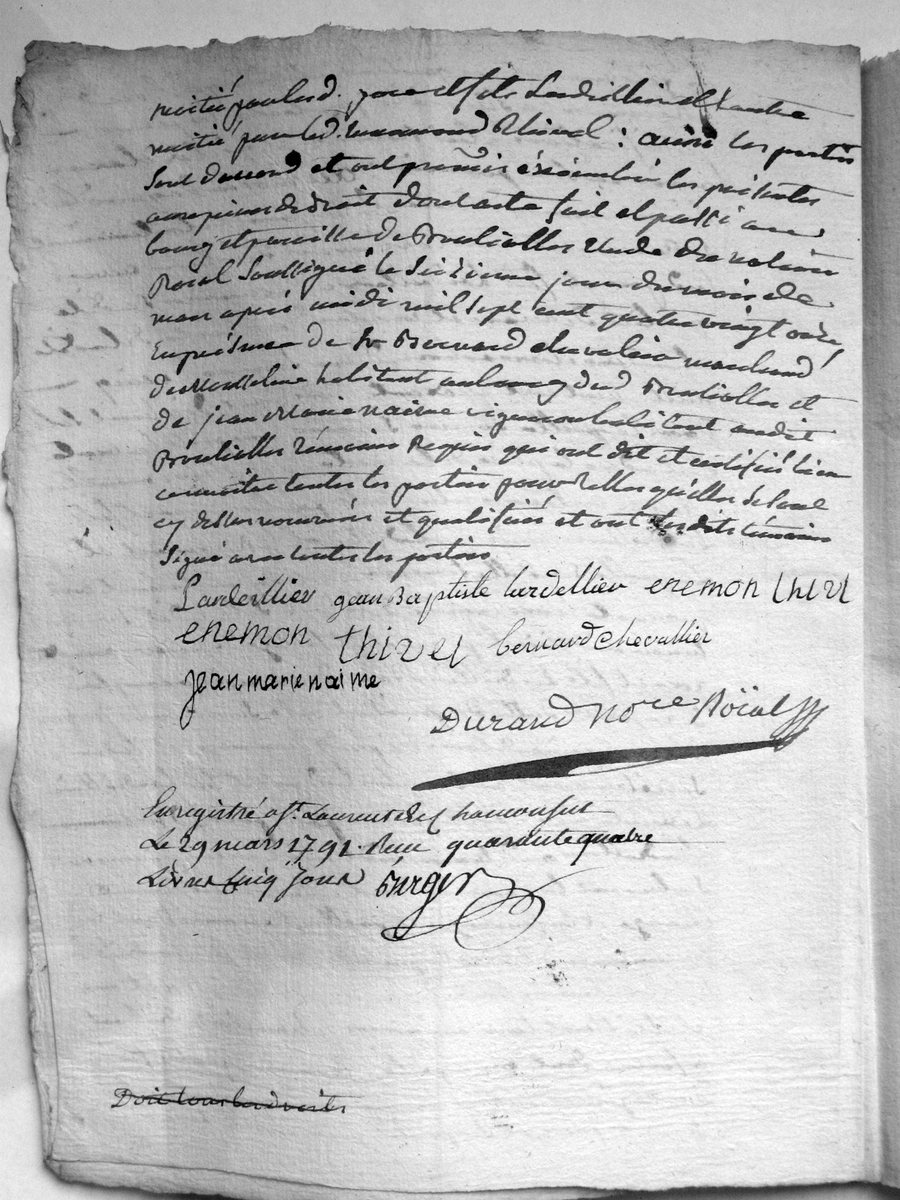 moitié par lesd. pere et fils Lardellier et l'autre
moitié par led. Ennemond Thivel : ainsi les parties
sont d'accord et ont promis éxécuter les présentes
aux peines de droit dont acte fait et passé au
bourg et paroisse de Brullioles Etude du notaire
Roïal Soussigné le Seizieme jour du mois de
mars après midi mil sept cent quatre vingt onze
En présence de Sr Bernard chevalier marchand
de Mousseline habitant au bourg dud Brullioles et
de jean Marie naime vigneron habitant audit
Brullioles témoins Requis qui ont dit et certifié bien
connoitre toutes les parties pour telles qu'elles se sont
cy dessus nommées et qualifiées et ont lesdits témoins
Signé avec toutes les parties
Lardeillier jean Baptiste lardellier enemon thivel
enemon thivel bernard chevallier
jean marie naime
Durand Nore Roïal
Enregistré a St. Laurent de Chamousset
Le 29 mars 1791. Reçu quarante quatre
Livres Cinq Sous
Doit tous les droits